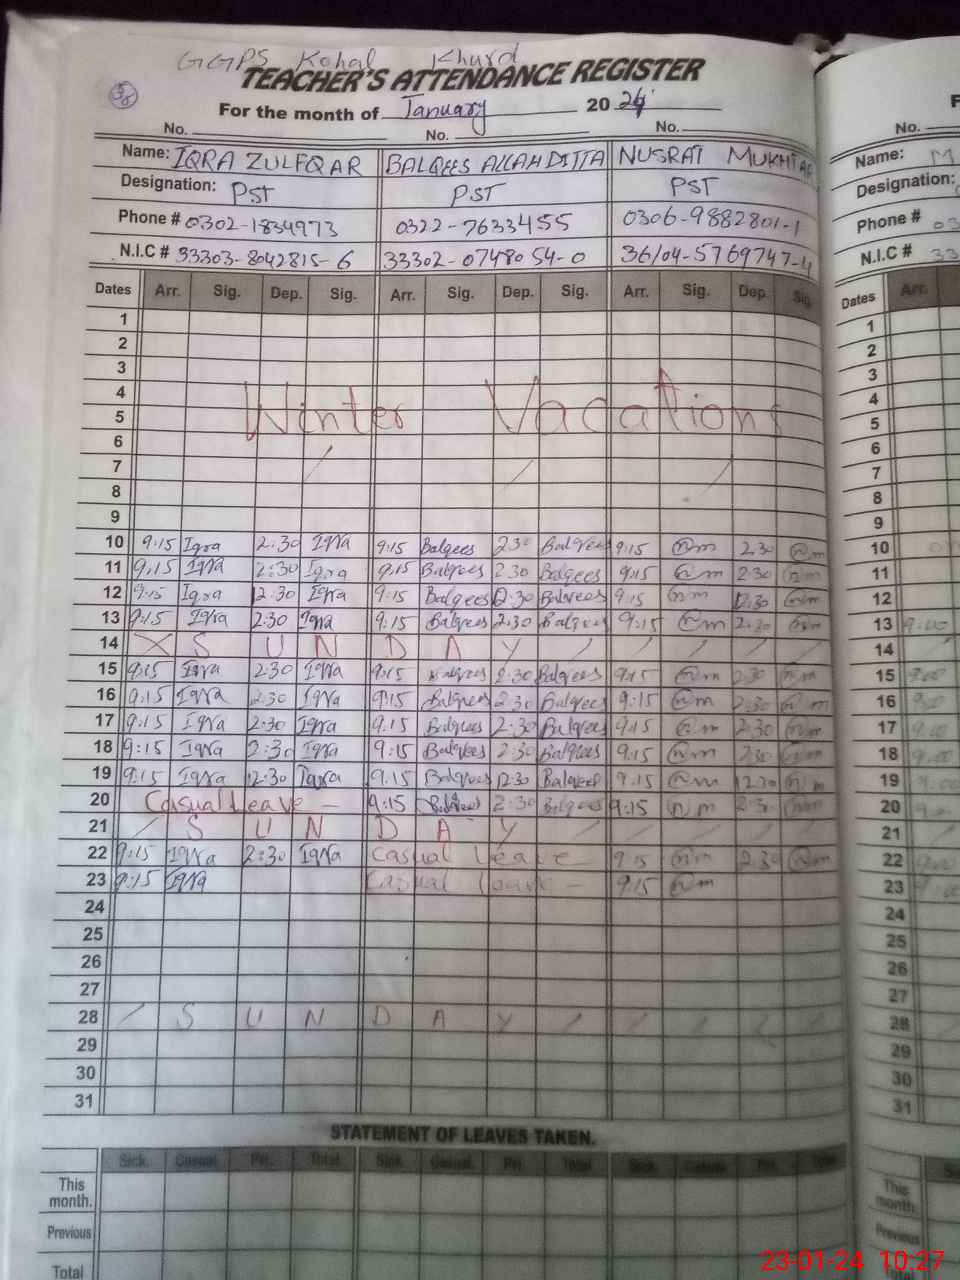 GGPS Kohal Khurd
TEACHER'S ATTENDANCE REGISTER
For the month of January 2024
No. No. No.
Name: IQRA ZULFQAR BALQEES ALLAH DITTA NUSRAT MUKHTAR
Designation: PST PST PST
Phone # 0302-1834973 0322-7633455 0306-9882801-1
N.I.C # 33303-8042815-6 33302-0748054-0 36104-5769747-4
Dates Arr. Sig. Dep. Sig. Arr. Sig. Dep. Sig. Arr. Sig. Dep. Sig.
1
2
3
4
5 Winter Vacations
6
7
8
9
10 9:15 Iqra 2:30 Iqra 9:15 Balqees 2:30 Balqees 9:15 nm 2:30 nm
11 9:15 Iqra 2:30 Iqra 9:15 Balqees 2:30 Balqees 9:15 nm 2:30 nm
12 9:15 Iqra 12:30 Iqra 9:15 Balqees 12:30 Balqees 9:15 nm 12:30 nm
13 9:15 Iqra 2:30 Iqra 9:15 Balqees 2:30 Balqees 9:15 nm 2:30 nm
14 X S U N D A Y / / / / /
15 9:15 Iqra 2:30 Iqra 9:15 Balqees 2:30 Balqees 9:15 nm 2:30 nm
16 9:15 Iqra 2:30 Iqra 9:15 Balqees 2:30 Balqees 9:15 nm 2:30 nm
17 9:15 Iqra 2:30 Iqra 9:15 Balqees 2:30 Balqees 9:15 nm 2:30 nm
18 9:15 Iqra 2:30 Iqra 9:15 Balqees 2:30 Balqees 9:15 nm 2:30 nm
19 9:15 Iqra 12:30 Iqra 9:15 Balqees 12:30 Balqees 9:15 nm 12:30 nm
20 Casual Leave - 9:15 Balqees 2:30 Balqees 9:15 nm 2:30 nm
21 / S U N D A Y / / / / /
22 9:15 Iqra 2:30 Iqra Casual Leave 9:15 nm 2:30 nm
23 9:15 Iqra Casual Leave - 9:15 nm
24
25
26
27
28 / S U N D A Y / / / / /
29
30
31
STATEMENT OF LEAVES TAKEN.
Sick. Casual. Pri. Total. Sick. Casual. Pri. Total Sick. Casual Pri. Total
This month.
Previous
Total
No.
Name: M
Designation:
Phone # 03
N.I.C # 33
Dates Arr.
1
2
3
4
5
6
7
8
9
10
11
12
13 9:00
14
15 9:00
16 9:00
17 9:00
18 9:00
19 9:00
20 9:00
21
22 9:00
23 9:00
24
25
26
27
28
29
30
31
This month.
Previous
Total
23-01-24 10:27